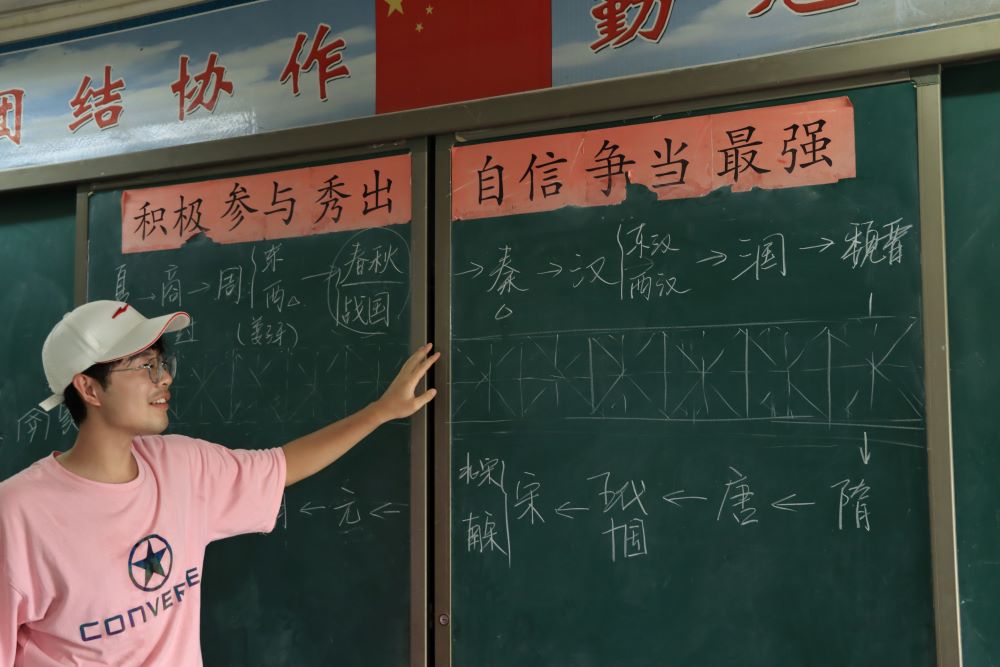 团结协作 勤
积极参与秀出 自信争当最强
夏→商→周{东 西△→春秋 战国
(姜子牙)
→秦△→汉{东汉 西汉→三国→魏晋
↓
隋
北宋 南宋}宋←五代十国←唐←隋
←元←
CONVERSE